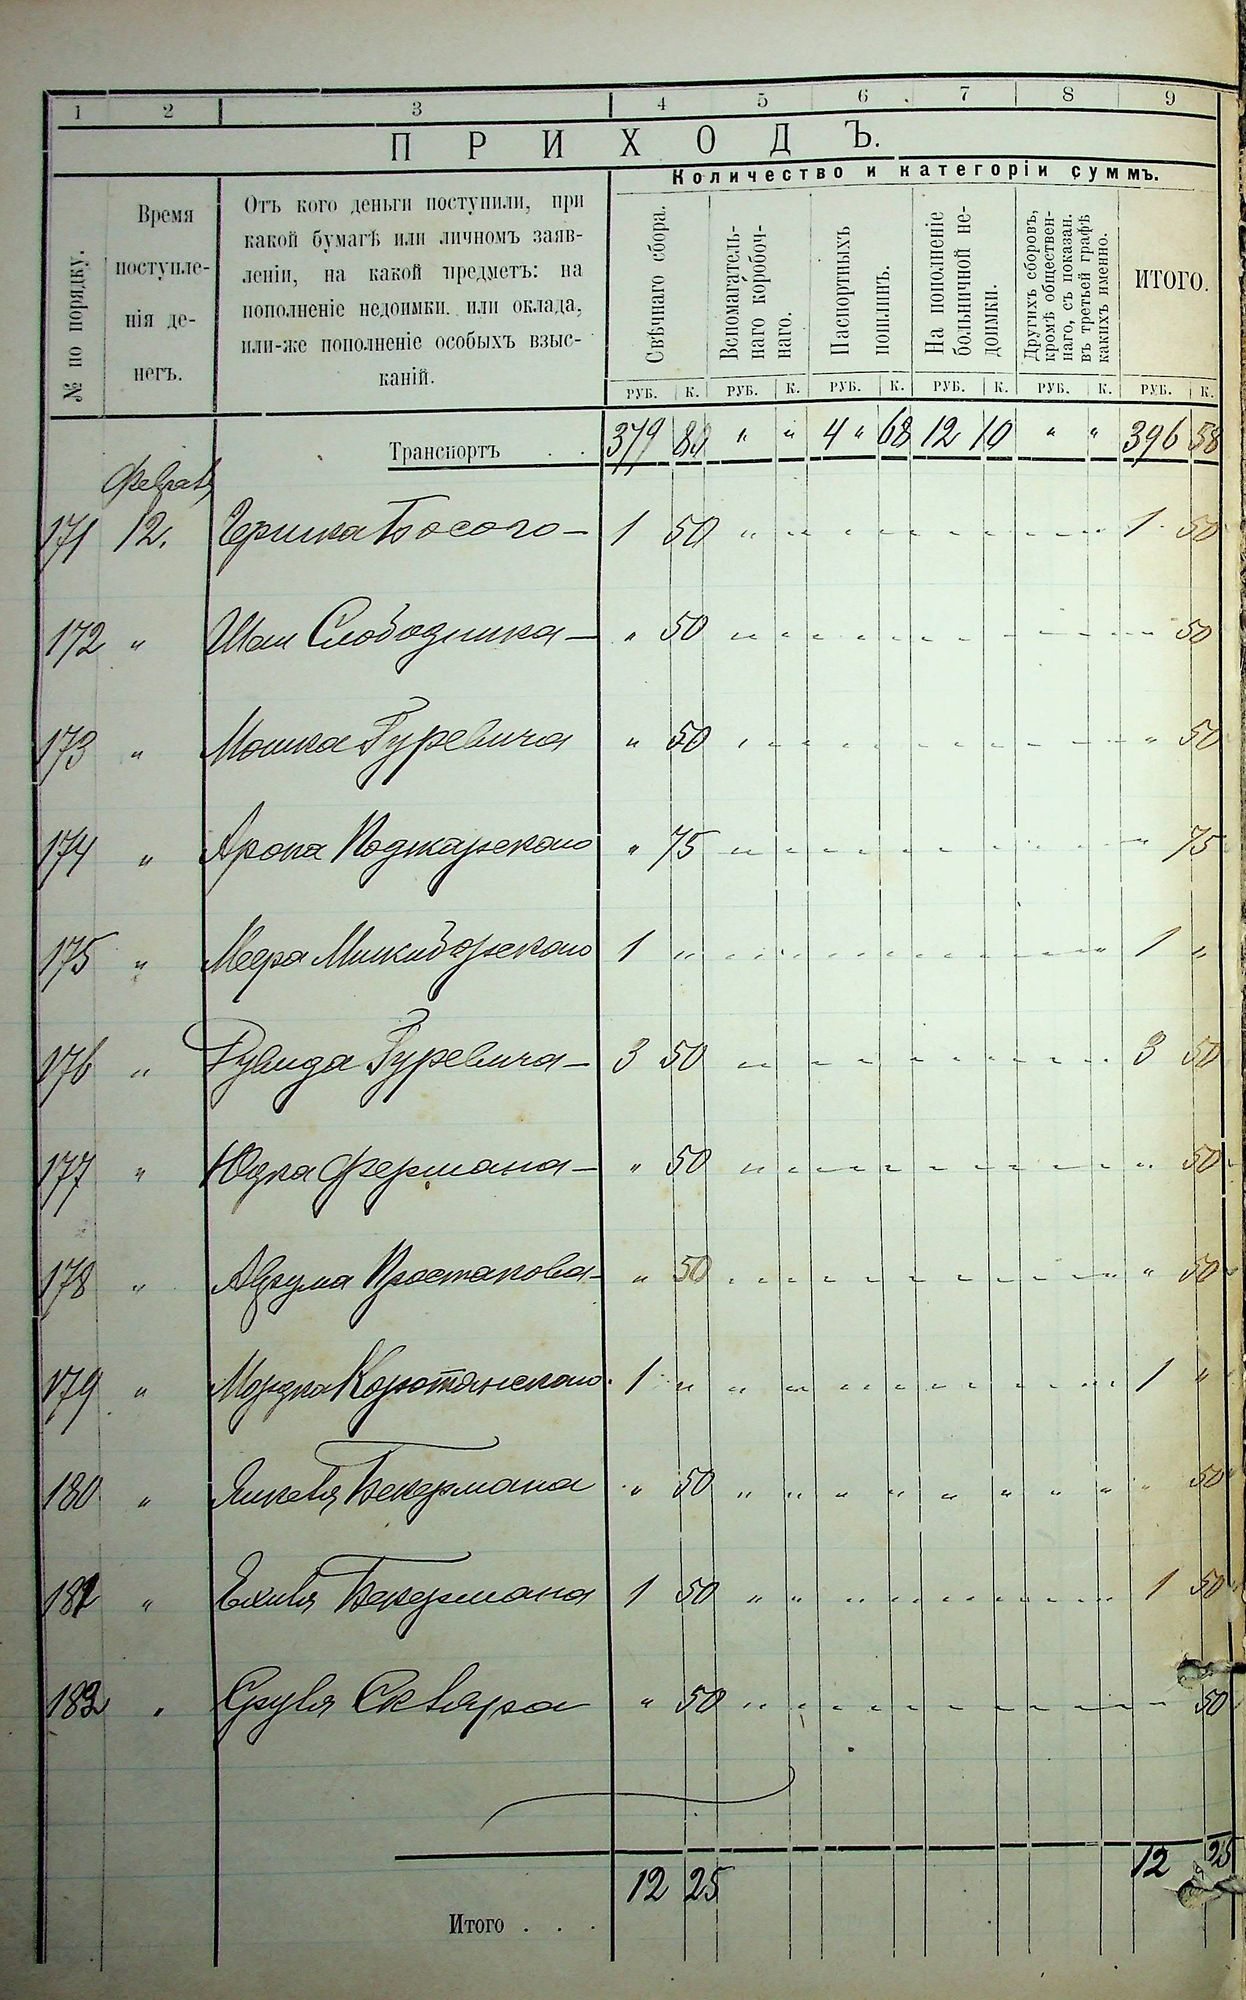 1 2 3 4 5 6 7 8 9
ПРИХОДЪ.
Количество и категоріи суммъ.
№ по порядку.
Время
поступле-
нія де-
негъ.
Отъ кого деньги поступили, при
какой бумагѣ или личномъ заяв-
леніи, на какой предметъ: на
пополненіе недоимки, или оклада,
или-же пополненіе особыхъ взыс-
каній.
Свѣчнаго сбора.
Вспомагатель-
наго коробоч-
наго.
Паспортныхъ
пошлинъ.
На пополненіе
больничной не-
доимки.
Другихъ сборовъ,
кромѣ обществен-
наго, съ показан.
въ третьей графѣ
какихъ именно.
ИТОГО.
РУБ. К. РУБ. К. РУБ. К. РУБ. К. РУБ. К. РУБ. К.
Транспортъ . . 379 80 " " 4 " 68 12 10 " " 396 58
Февраля
171 12. Гершка Босого — 1 50 " " 1 50
172 " Шаи Слободника — " 50 " 50
173 " Мошка Гуревича " 50 " 50
174 " Арона Поджарского " 75 " 75
175 " Меера 1 " 1 "
176 " Рувида Гуревича — 3 50 3 50
177 " Юдка Фермана — " 50 " 50
178 " Аврума — " 50 " 50
179 " Мордка 1 " 1 "
180 " Янкеля Бекермана " 50 " 50
181 " Бекермана 1 50 1 50
182 " Сруля Скляра " 50 50
12 25 12 25
Итого . . .